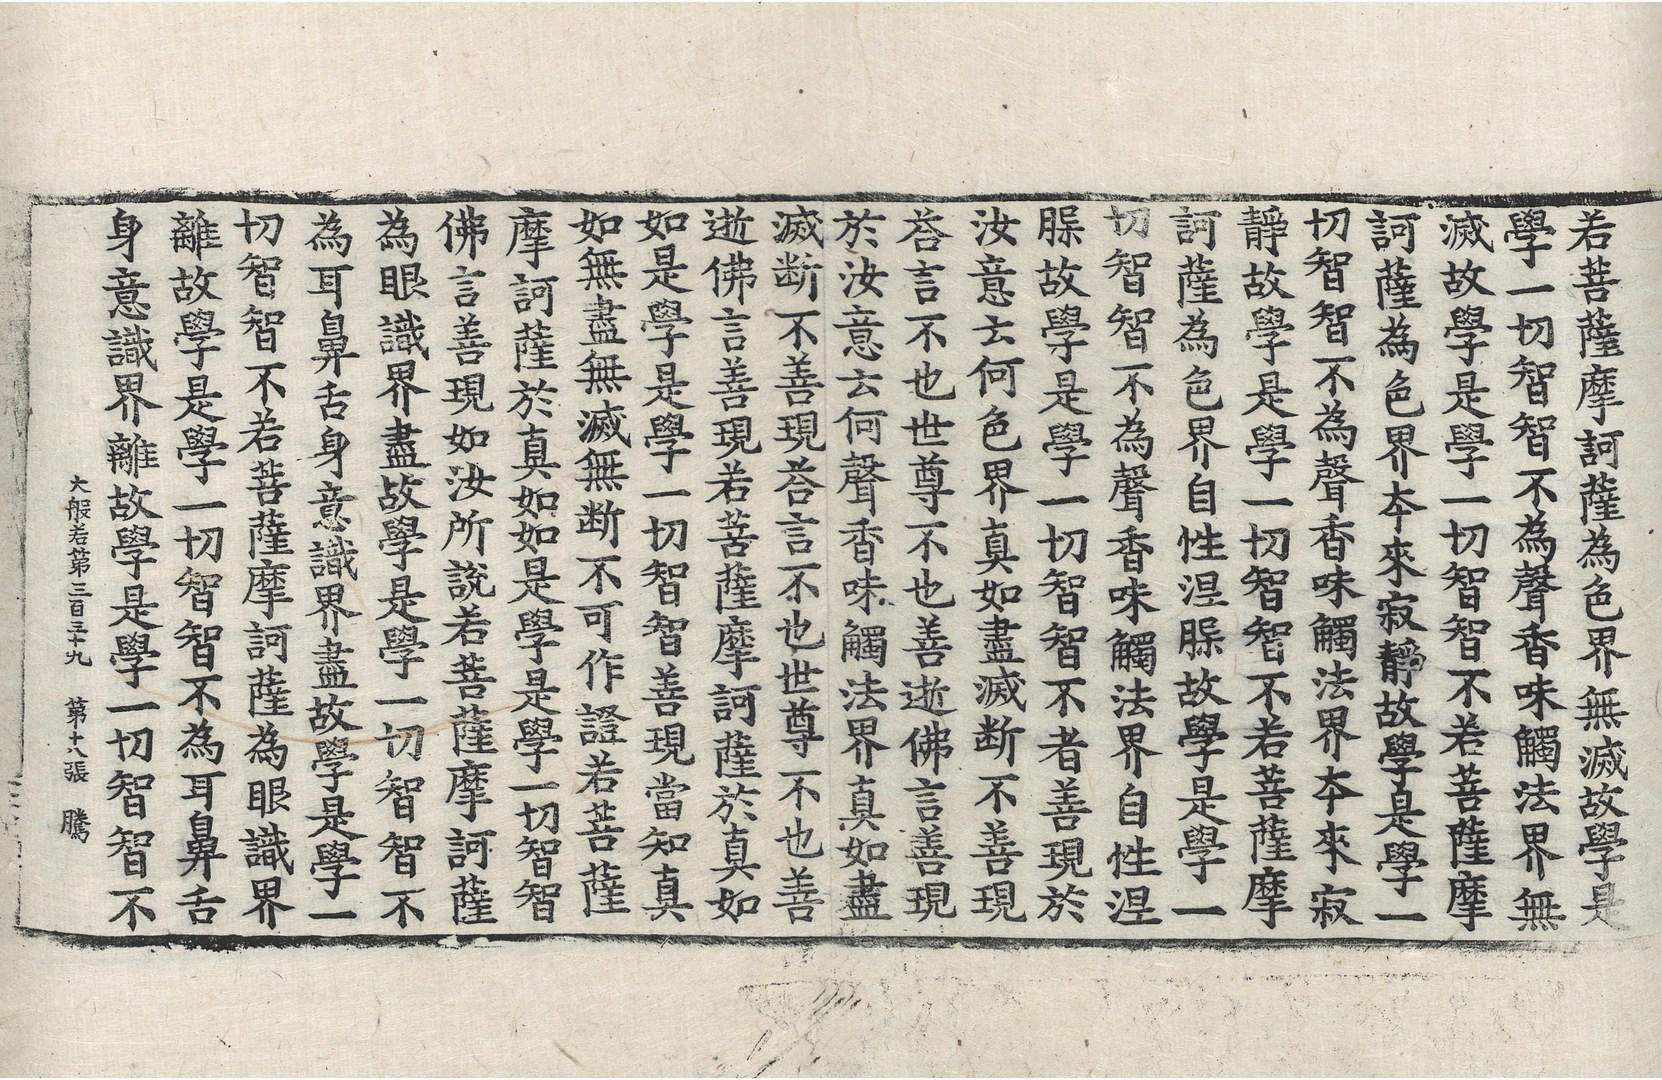 若菩薩摩訶薩為色界無滅故學是
學一切智智不為聲香味觸法界無
滅故學是學一切智智不若菩薩摩
訶薩為色界本來寂靜故學是學一
切智智不為聲香味觸法界本來寂
靜故學是學一切智智不若菩薩摩
訶薩為色界自性涅槃故學是學一
切智智不為聲香味觸法界自性涅
槃故學是學一切智智不者善現於
汝意云何色界真如盡滅断不善現
荅言不也世尊不也善逝佛言善現
於汝意云何聲香味觸法界真如盡
滅断不善現荅言不也世尊不也善
逝佛言善現若菩薩摩訶薩於真如
如是學是學一切智智善現當知真
如無盡無滅無断不可作證若菩薩
摩訶薩於真如如是學是學一切智智
佛言善現如汝所說若菩薩摩訶薩
為眼識界盡故學是學一切智智不
為耳鼻舌身意識界盡故學是學一
切智智不若菩薩摩訶薩為眼識界
離故學是學一切智智不為耳鼻舌
身意識界離故學是學一切智智不
大般若第三百三十九 第十八張 騰